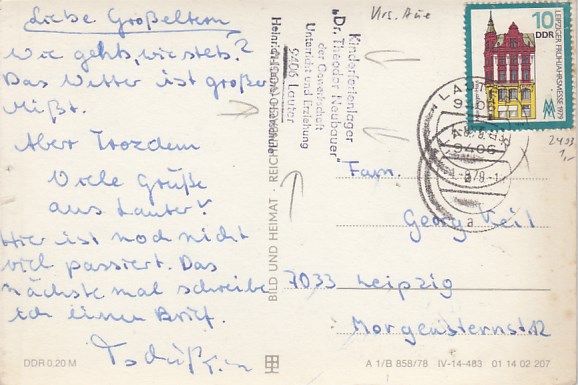 Liebe Großeltern
Wie gehts, wie stets?
Das Wetter ist großer
Mißt.
Aber Trozdem
Viele Grüße
aus Lauter!
Hier ist noch nicht
viel passiert. Das
nächste mal schreibe
ich einen Brief.
DDR 0,20 M
BILD UND HEIMAT · REICHENBACH (VOGTL)
Kinderferienlager
"Dr. Theodor Neubauer"
der Gewerkschaft
Unterricht und Erziehung
9406 Lauter
Krs. Aue
10
DDR
LEIPZIGER FRÜHJAHRSMESSE 1979
LAUTER
9406
a
Fam.
Georg Keil
7033 Leipzig
Morgensternst. 12
A 1/B 858/78 IV-14-483 01 14 02 207